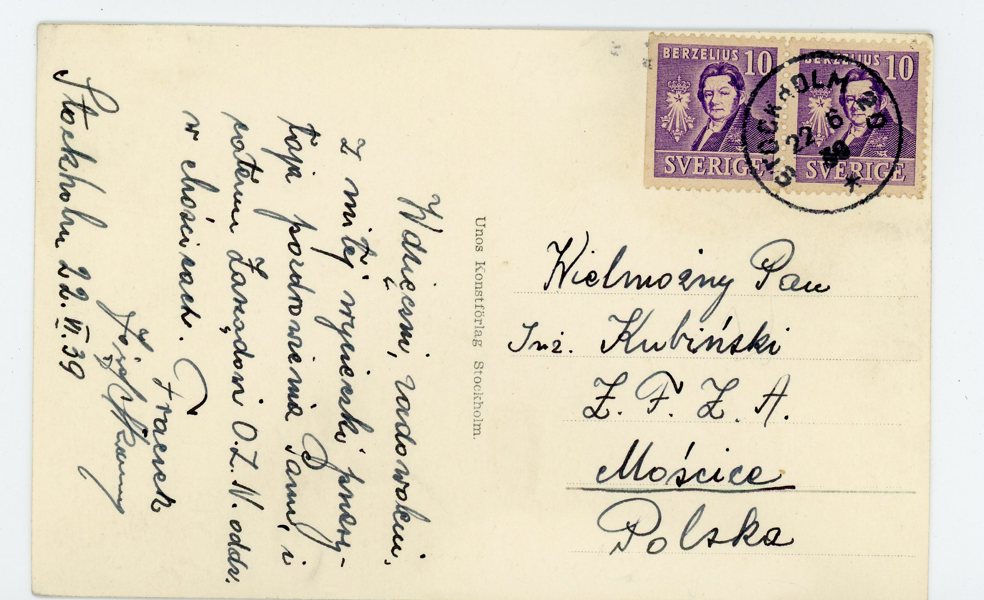 Wdzięczni, zadowoleni,
z miłej wycieczki przesy-
łają pozdrowienia Panu, i
całemu Zarządowi O.Z.N. oddz.
w Mościcach.
Fracek
Stockholm 22.VI.39
Unos Konstförlag Stockholm.
BERZELIUS 10
SVERIGE
BERZELIUS 10
SVERIGE
STOCKHOLM 20
22 6
39
Wielmożny Pan
Inż. Kubiński
Z. F. Z. A.
Mościce
Polska